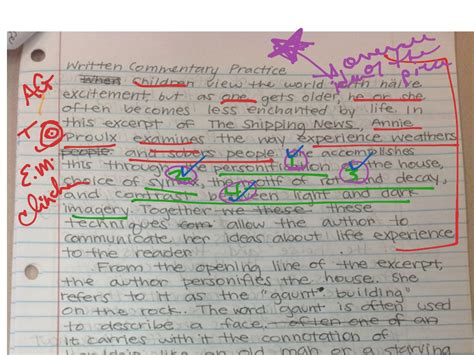 over
Written Commentary Practice
When Children view the world with naive
AG
excitement, but as one gets older, he or she
often becomes less enchanted by life. In
T
this excerpt of The Shipping News, Annie
Proulx examines the way experience weathers
people and sobers people. She accomplishes
E.M.
this through the personification of the house,
choice of syntax, the motif of rot and decay,
Clincher
and contrast between light and dark
imagery. Together we these these
techniques allow the author to
communicate her ideas about life experience
to the reader.
From the opening line of the excerpt,
the author personifies the house. She
refers to it as the "gaunt building"
on the rock. The word gaunt is often used
to describe a face, often one of an
it carries with it the connotation of
like an old man or a starving